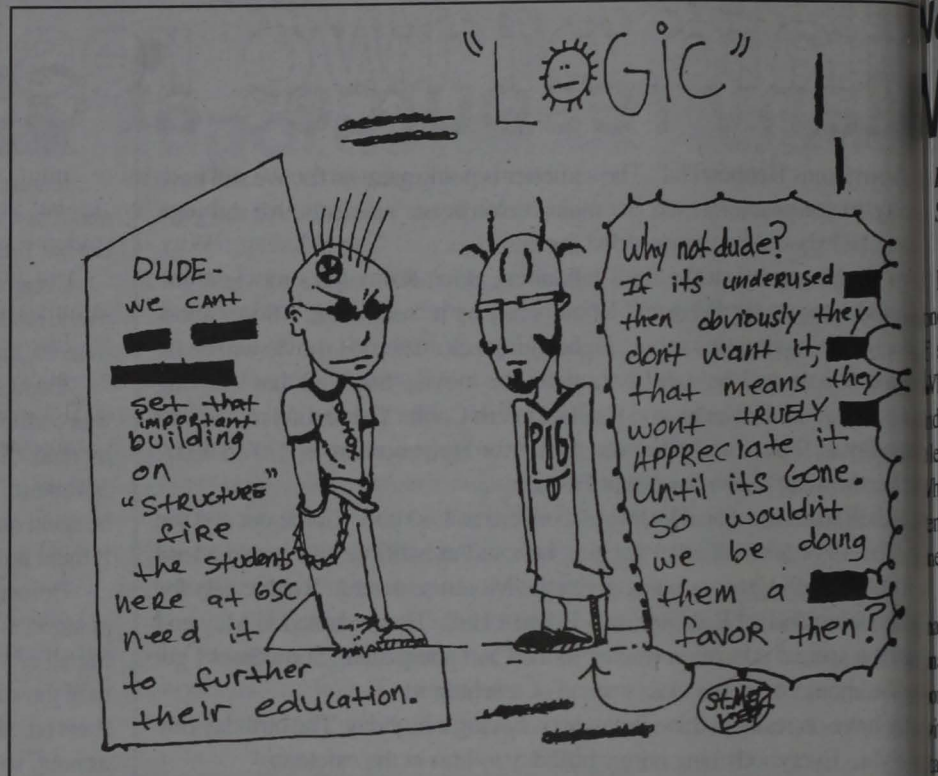 "LOGIC"
DUDE-
we cant
set that
important
building
on
"STRUCTURE"
fire
the students
here at GSC
need it
to further
their education.
PIG
Why not dude?
If its underused
then obviously they
dont want it,
that means they
wont TRUELY
APPReciate it
Until its Gone.
so wouldnt
we be doing
them a
favor then?